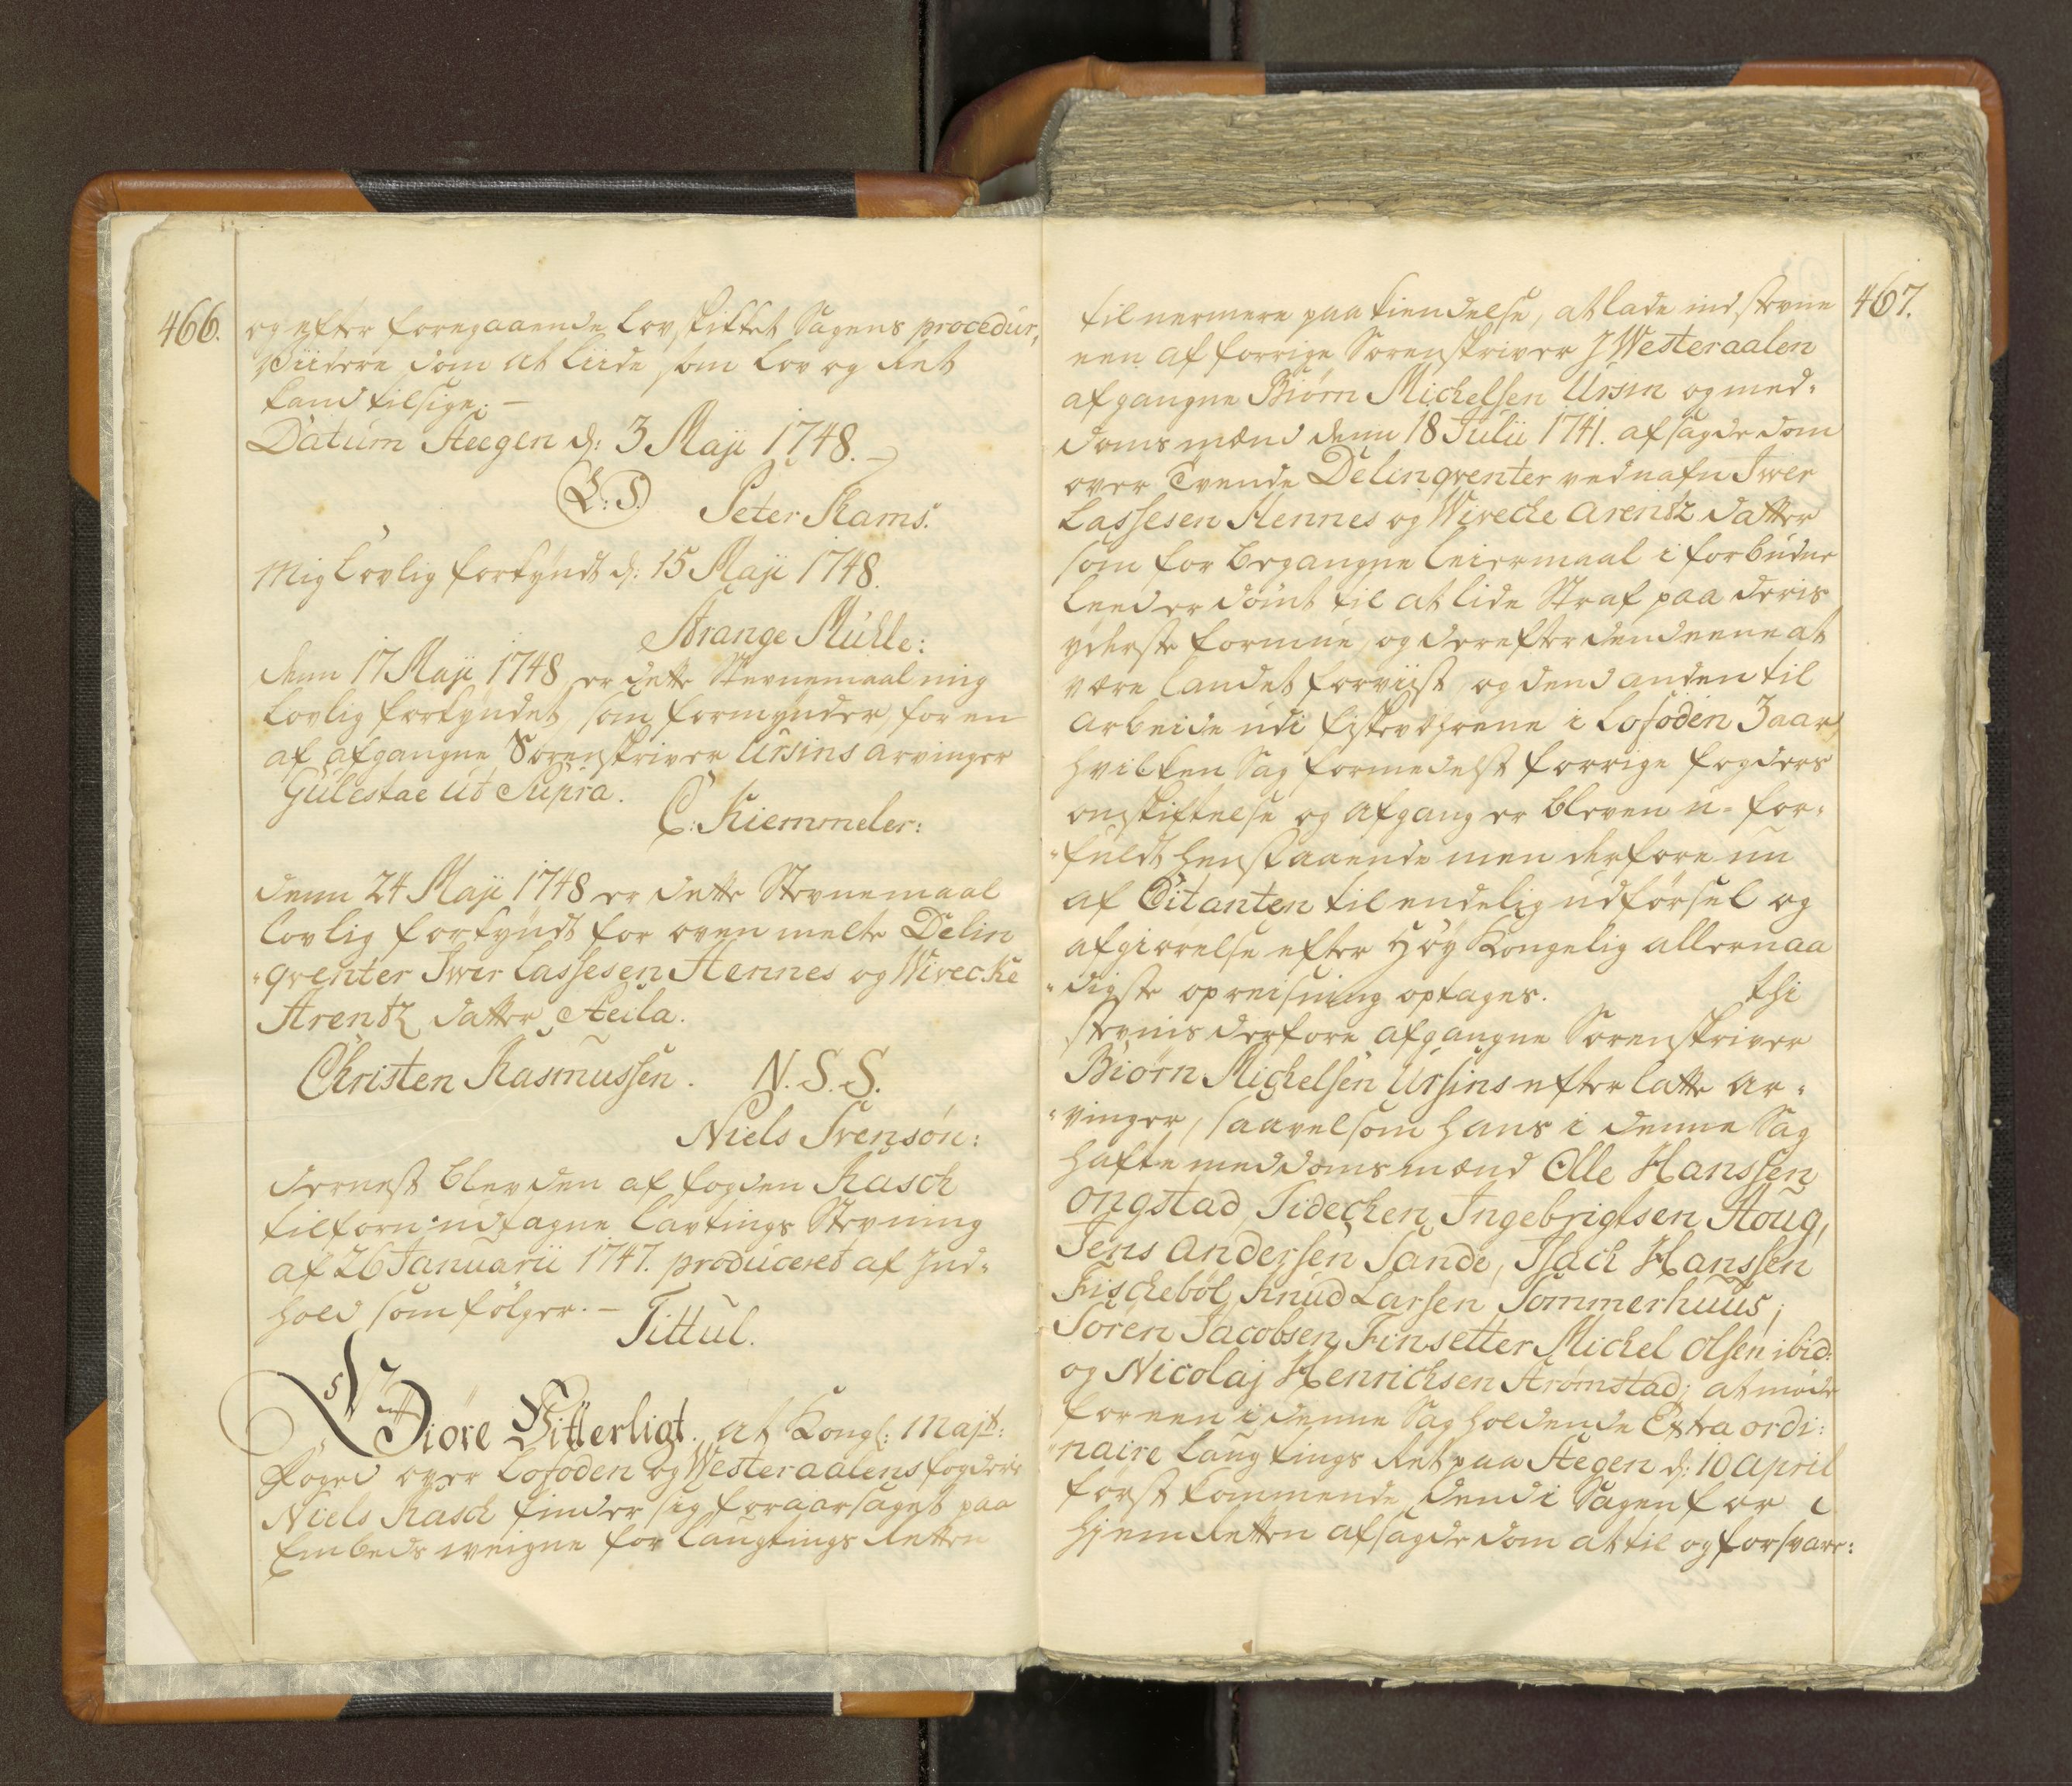 466.
og efter foregaaende lovskikket Sagens procedur,
Viidere dom at liide, som lov og Ret
kand tilsige; -
Datum Steegen d: 3 Maji 1748.
L: S. Peter Rams.
Mig Lovlig forkyndt d: 15 Maji 1748.
Strange Muhle:
denn 17 Maji 1748 er dette Stevnemaal mig
Lovlig forkyndet, som formynder for en
af afgangne Sorenskriver Ursins arvinger
Gulestae ut Supra.
C: Kiemmeler:
denn 24 Maji 1748 er dette Stevnemaal
lovlig forkyndt for oven melte Delin
qventer Iwer Lassesen Hennes og Wivecke
Arentz datter Aeila.
Christen Rasmussen. N. S. S.
Niels Svensøn:
dernest blev den af fogden Rasch
tilforn udtagne Lavtings Stevning
af 26 Januarii 1747. produceret af Ind-
hold som følger. -
Tittul.
Giöre Witterligt. at Kongl: Majt:
foged over Lofoden og Westeraalens fogderie
Niels Rasch finder sig foraarsaget paa
Embeds weigne for Laugtings Retten
467.
til nermere paakiendelse, at lade indstevne
een af forrige Sorenskriver J Westeraalen
afgangne Biørn Michelsen Ursin og med-
doms mænd denn 18 Julii 1741. afsagde dom
over Tvende Delinqventer ved nafn Iwer
Lassesen Hennes og Wivecke Arentz datter
som for begangne leiermaal i forbudne
leed er dömt til at lide Straf paa deris
yderste formue, og derefter dend eene at
være landet forviist, og dend anden til
Arbeide udi fiskeværene i Lofoden 3 aar,
hvilken Sag formedelst forrige fogders
omskiftelse og afgang er bleven u-for-
fuldt henstaaende men derfore nu
af Citanten til endelig udførsel og
afgiørelse efter Høy Kongelig allernaa
digste opreisning optages. thi
stevnis derfore afgangne Sorenskriver
Biørn Michelsen Ursins efterlatte Ar-
vinger, saavelsom hans i denne Sag
hafte meddoms mænd Olle Hanssen
Ongstad, Tidechen Ingebrigtsen Houg,
Jens Andersen Sande, Isach Hanssen
Fischeböl, Knud Larsen Sommerhuus,
Sören Jacobsen Finsetter Michel Olsen ibid:
og Nicolaj Henrichsen Strömstad; at møde
for een i denne Sag holdende Extra ordi-
naire Laugtings Ret paa Stegen d: 10 April
først kommende, dend i Sagen for
Hiemretten afsagde dom at til og forsvare: